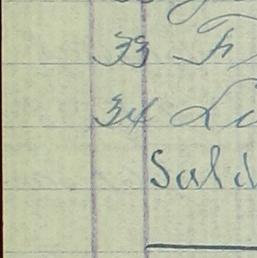 33 F
34 Li
Sald